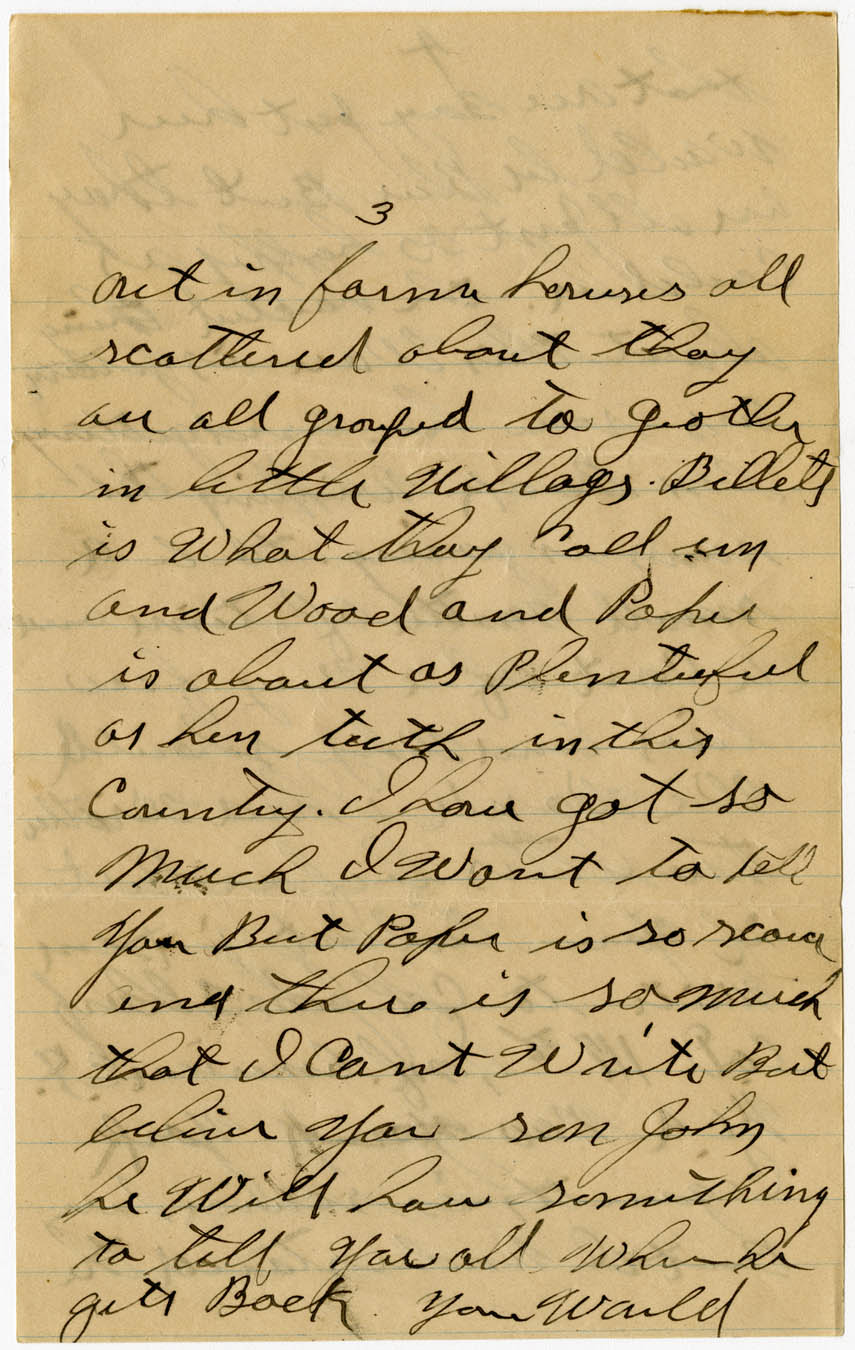 3
out in farm houses all
scattered about thay
are all grouped to geother
in little Villags. Billets
is What thay Call um
and Wood and Paper
is about as Plentuful
as hen teeth in this
Country. I have got so
Much I Want to tell
You But Paper is so scarce
and there is so Much
that I Cant Write But
belive You son John
he Will have something
to tell You all When he
gets Back You Would